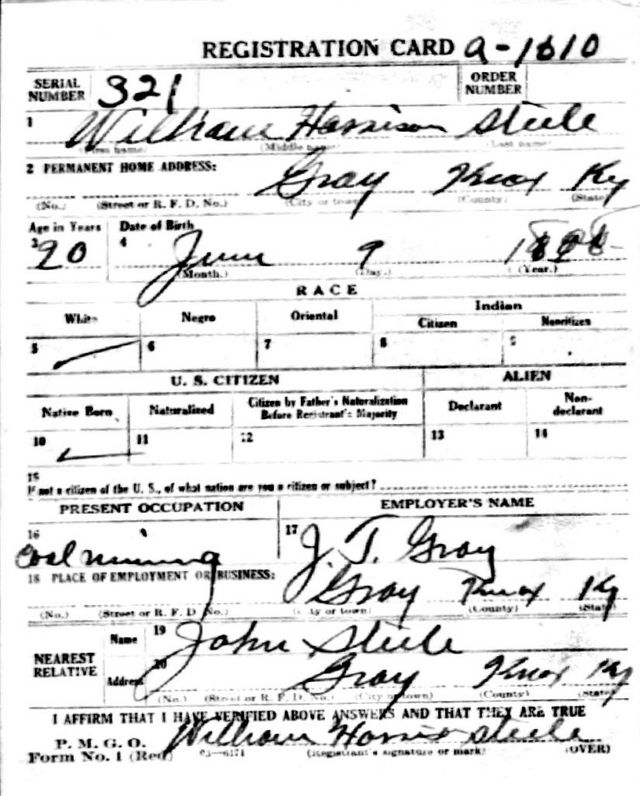 REGISTRATION CARD a-1610
SERIAL NUMBER 321 ORDER NUMBER
1 William Harrison Steele
(First name) (Middle name) (Last name)
2 PERMANENT HOME ADDRESS: Gray Knox Ky
(No.) (Street or R. F. D. No.) (City or town) (County) (State)
Age in Years Date of Birth
3 20 4 June 9
(Month.) (Day.) (Year.)
RACE
White Negro Oriental Indian
Citizen Noncitizen
5 6 7 8 9
U. S. CITIZEN ALIEN
Native Born Naturalized Citizen by Father's Naturalization Before Registrant's Majority Declarant Non-declarant
10 11 12 13 14
15
If not a citizen of the U. S., of what nation are you a citizen or subject?
PRESENT OCCUPATION EMPLOYER'S NAME
16 Coal mining 17 J. T. Gray
18 PLACE OF EMPLOYMENT OR BUSINESS: Gray Knox Ky
(No.) (Street or R. F. D. No.) (City or town) (County) (State)
NEAREST RELATIVE Name 19 John Steele
Address 20 Gray Knox Ky
(No.) (Street or R. F. D. No.) (City or town) (County) (State)
I AFFIRM THAT I HAVE VERIFIED ABOVE ANSWERS AND THAT THEY ARE TRUE
P. M. G. O.
Form No. 1 (Red) 03—6171 William Harris Steele
(Registrant's signature or mark) (OVER)